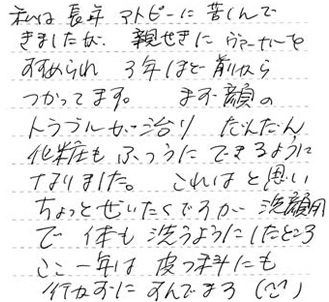 私は 長年 アトピーに 苦しんで
きましたが、親せきに ヴァーナルを
すすめられ 3年ほど前から
つかってます。 まず顔の
トラブルが治り だんだん
化粧も ふつうに できるように
なりました。 これは と思い
ちょっとぜいたくですが 洗顔用
で 体も 洗うようにしたところ
ここ一年は 皮フ科にも
行かずに すんでます (^^)